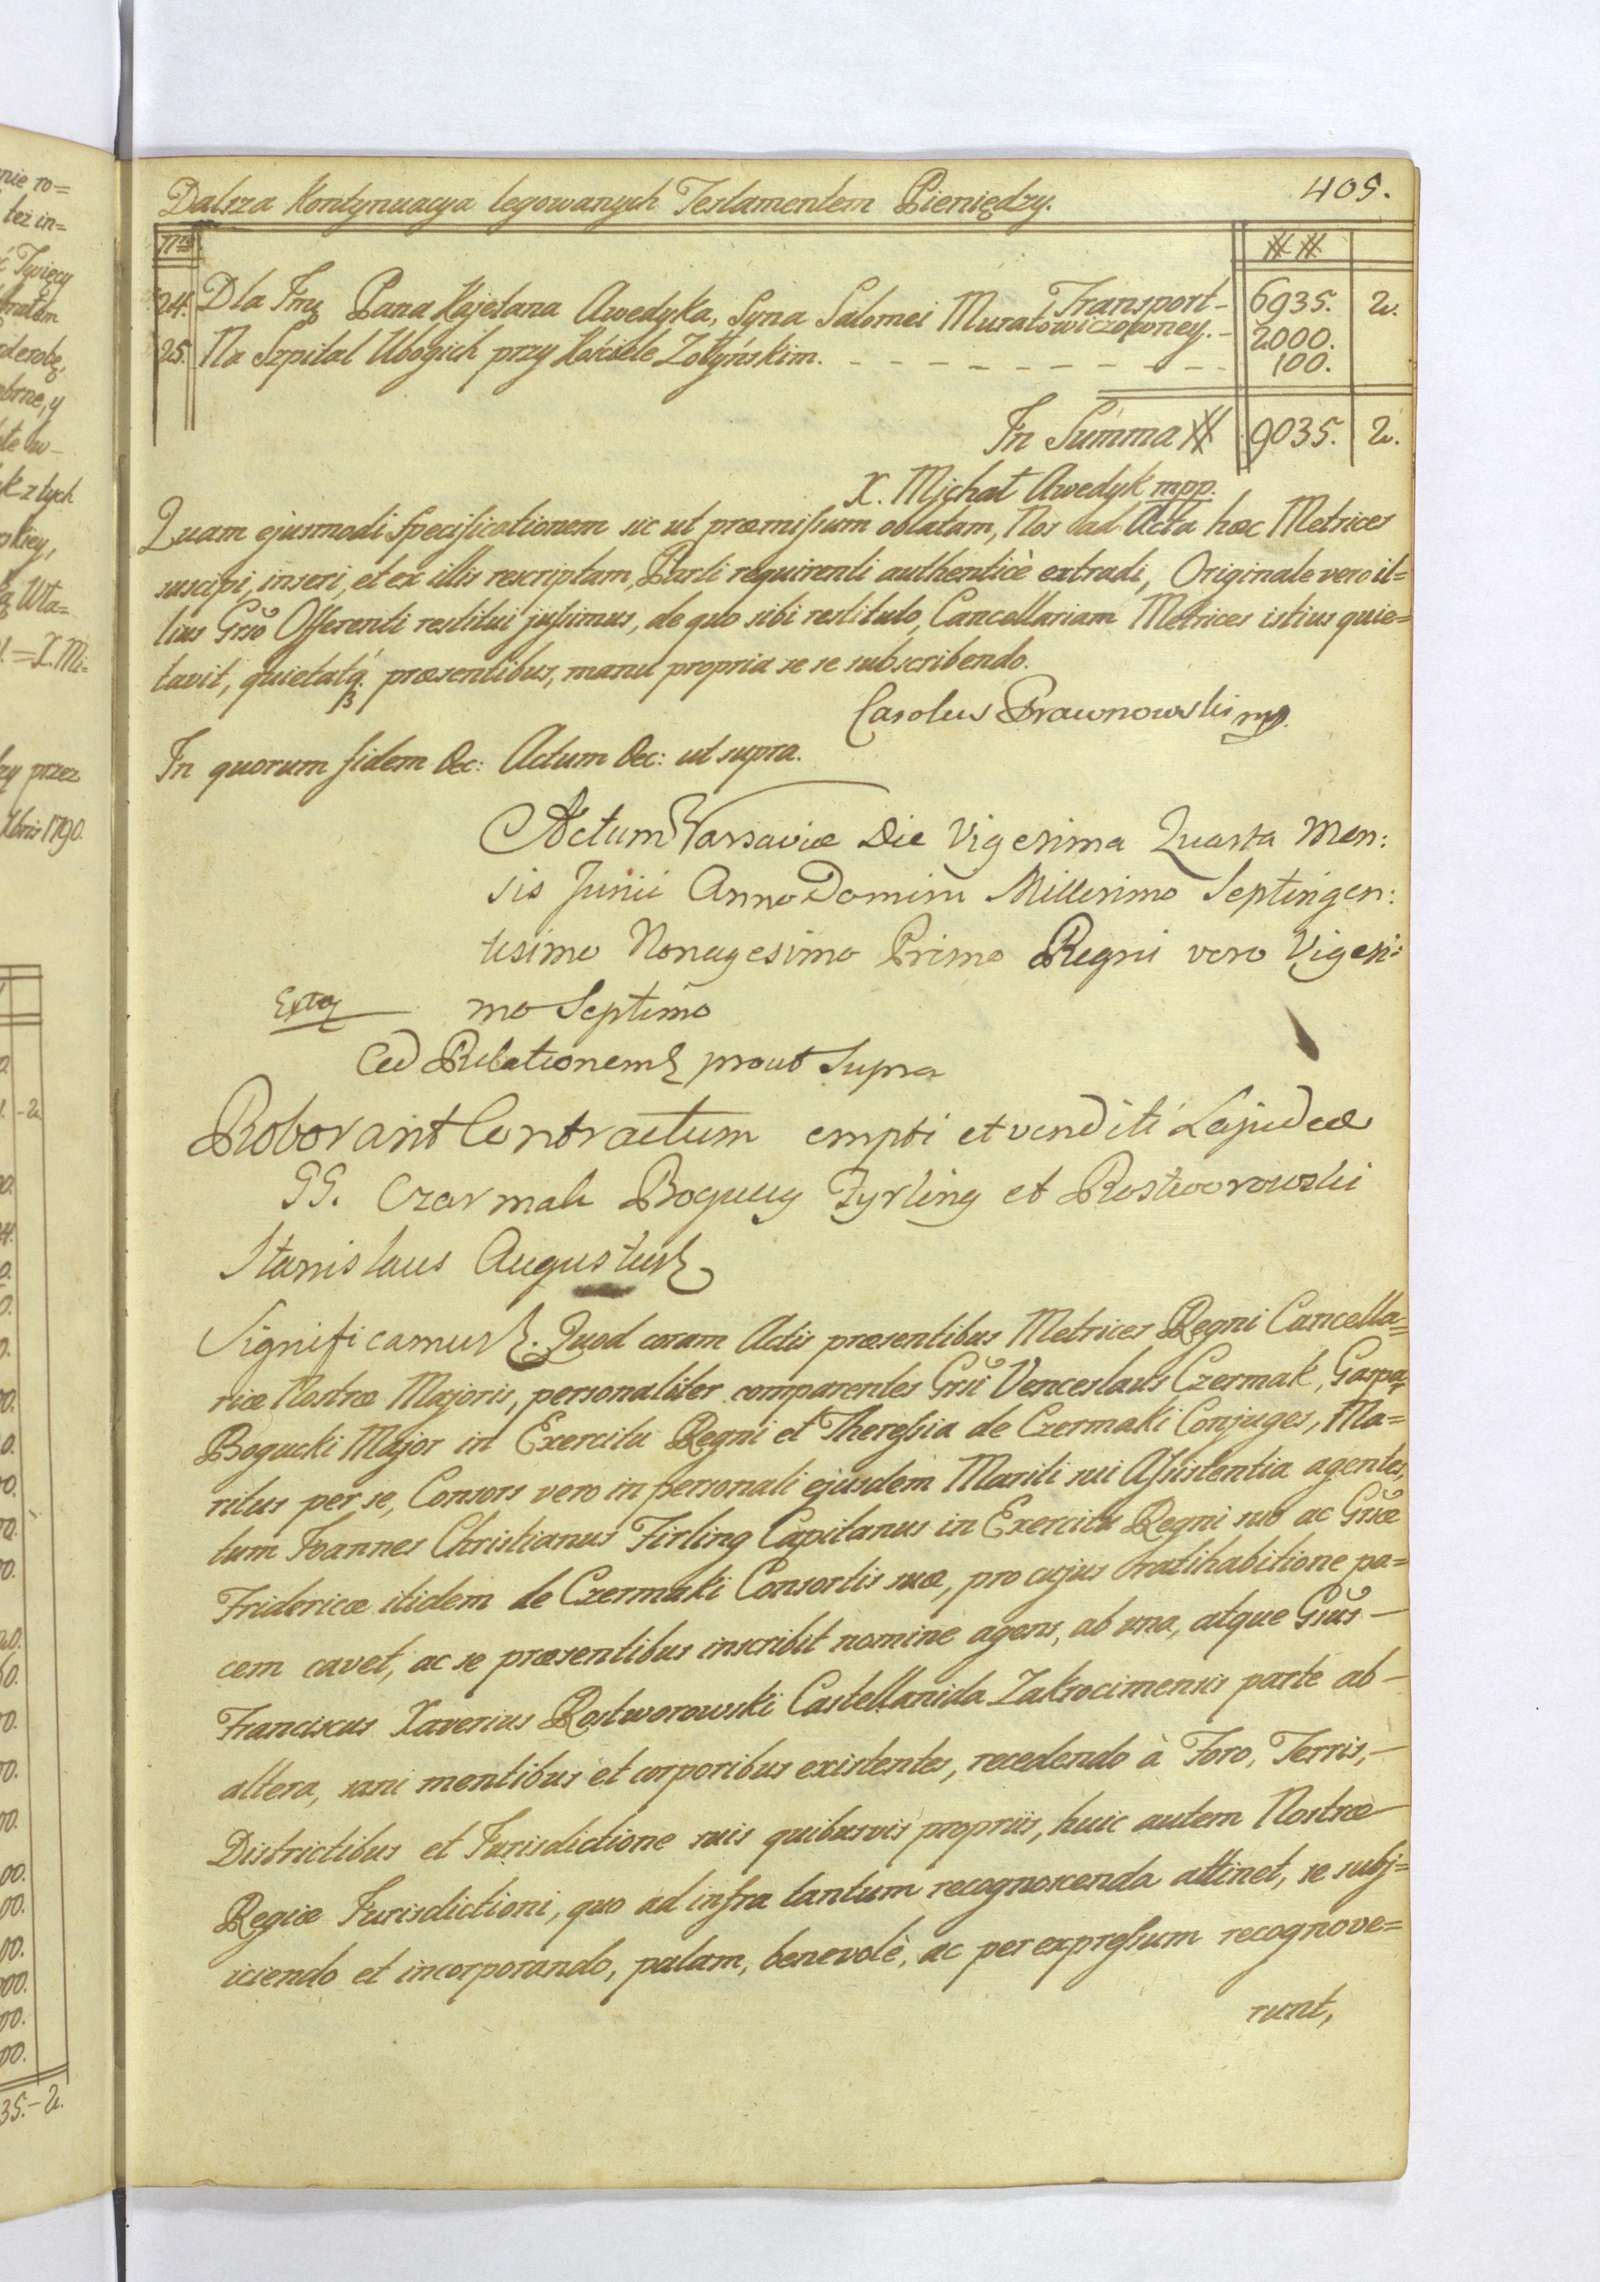 405.
Dalsza Kontynuacya legowanych Testamentem Pieniędzy.
Nro ## ##
Transport - 6935. 2.
24. Dla Jmć Pana Kajetana Awedyka, Syna Salomei Muratowiczowney. - 2000.
25. Na Szpital Ubogich przy Kościele Żołyńskim. - - - - - - - - - 100.
In Summa ## 9035. 2.
X. Michał Awedyk mpp.
Quam ejusmodi Specificationem sic ut præmissum oblatam, Nos ad Acta hæc Metrices
suscipi, inseri, et ex illis rescriptam, Parti requirenti authenticè extradi, Originale vero il=
lius Grso Offerenti restitui jussimus, de quo sibi restituto, Cancellariam Metrices istius quie=
tavit, quietatq. præsentibus, manu propria se se subscribendo.
Carolus Prawnowski mp.
In quorum fidem &c: Actum &c: ut supra.
Actum Varsaviæ Die Vigesima Quarta Men:
sis Junii Anno Domini Millesimo Septingen:
tesimo Nonagesimo Primo Regni vero Vigesi:
mo Septimo
Ad Relationem prout Supra
Roborant Contractum empti et venditi Lapideæ
GG. Czermak Bogucy Fyrling et Rostworowski
Stanislaus Augustus
Significamus. Quod coram Actis præsentibus Metrices Regni Cancella=
riæ Nostræ Majoris, personaliter comparentes Grsi Venceslaus Czermak, Gaspar
Bogucki Major in Exercitu Regni et Theressia de Czermaki Conjuges, Ma=
ritus per se, Consors vero in personali ejusdem Mariti sui Assistentia agentes,
tum Joannes Christianus Firling Capitanus in Exercitu Regni suo ac Gsæ
Fridericæ itidem de Czermaki Consortis suæ, pro cujus ratihabitione pa=
cem cavet, ac se præsentibus inscribit nomine agens, ab una, atque Gsus —
Franciscus Xaverius Rostworowski Castellanida Zakrocimensis parte ab —
altera, sani mentibus et corporibus existentes, recedendo à Foro, Terris, —
Districtibus et Jurisdictione suis quibusvis propriis, huic autem Nostræ
Regiæ Jurisdictioni, quo ad infra tantum recognoscenda attinet, se subj=
iciendo et incorporando, palam, benevolè, ac per expressum recognove=
runt,